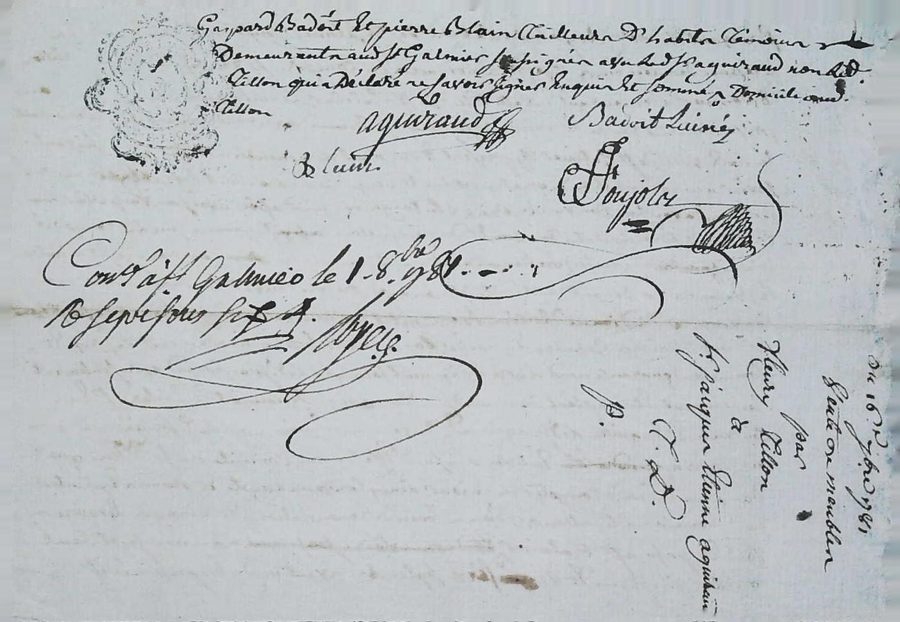 Gaspard Badoit Et pierre Blain Tailleurs D'habits Témoins
Demeurants aud St Galmier soussignés avec led Sr aguiraud non led.
Tillon qui a Déclaré ne savoir signer Enquis Et sommé Domicile aud.
Tillon
aguiraud
Badoit
Blain
Con.lé a St Galmier le 1 8bre 1781
R sept sous
du 16 7bre 1781
Vente de meubles
par
Fleury Tillon
à
Sr jacques Etienne aguiraud
T. D.
p.